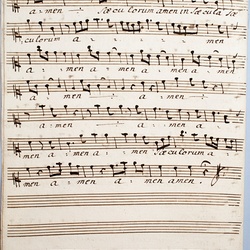 a - men - Sæculorum amen in Sæcula Sæ
culorum a - - - men
a - men a - men a - men amen a
men a - - - a - men
a - men a - - - men a
men a - men a - men Sæculorum a
men a - men a - men amen.